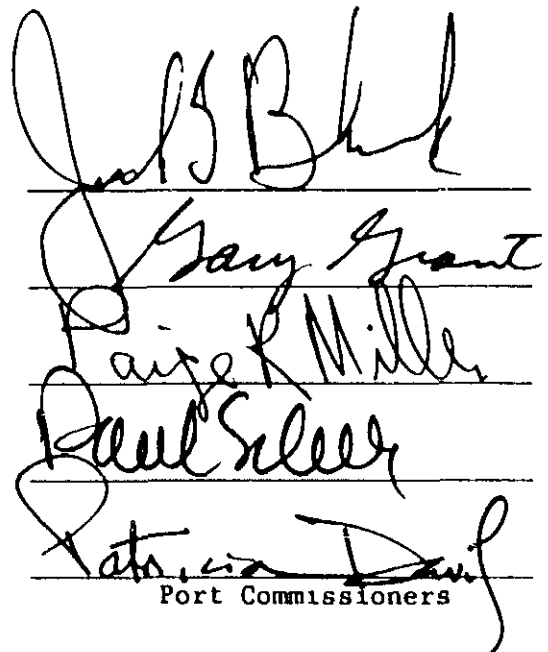 Jack Block
Gary Grant
Paige K Miller
Paul
Patricia Davis
Port Commissioners